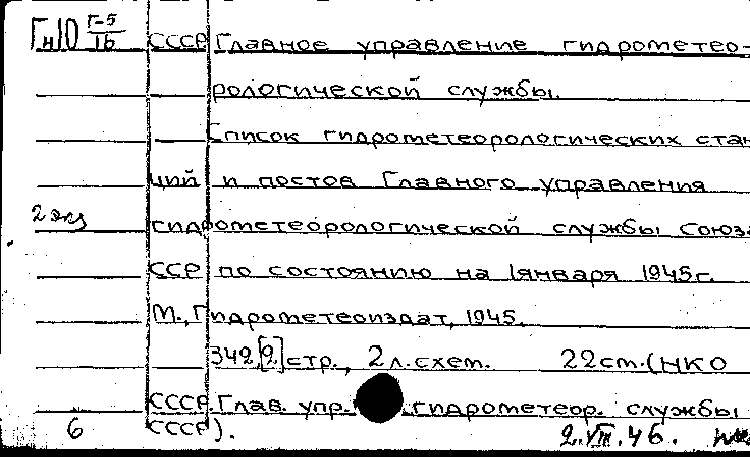 Гн10 Г-5/16 СССР Главное управление гидрометео-
рологической службы.
Список гидрометеорологических стан
ций и постов Главного управления
2 экз гидрометеорологической службы Союза
ССР по состоянию на 1 января 1945 г.
М., Гидрометеоиздат, 1945.
342 [2] стр., 2 л. схем. 22 см. (НКО
СССР. Глав. упр. гидрометеор. службы
6 СССР). 2.VIII.46.